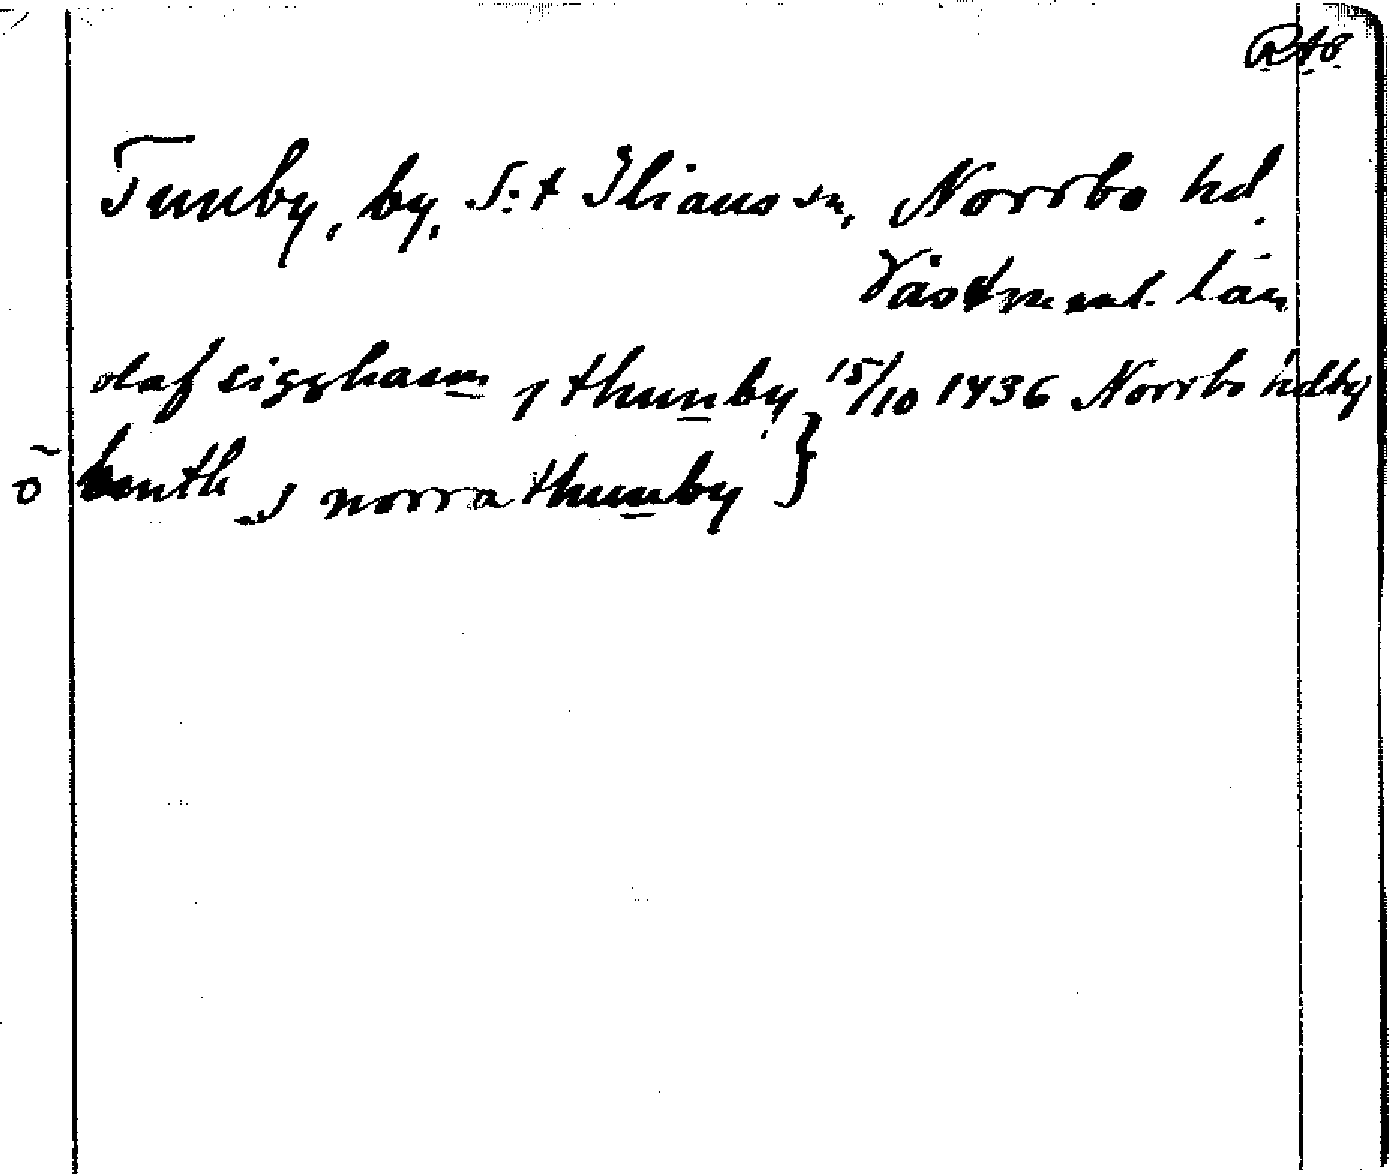 RAÖ
Tunby, by, S:t Ilians sn, Norrbo hd.
Västmanl. län
olaf siggha​son j thunby } 15/10 1436 Norrbo hdtg
õ benth j norra thunby }